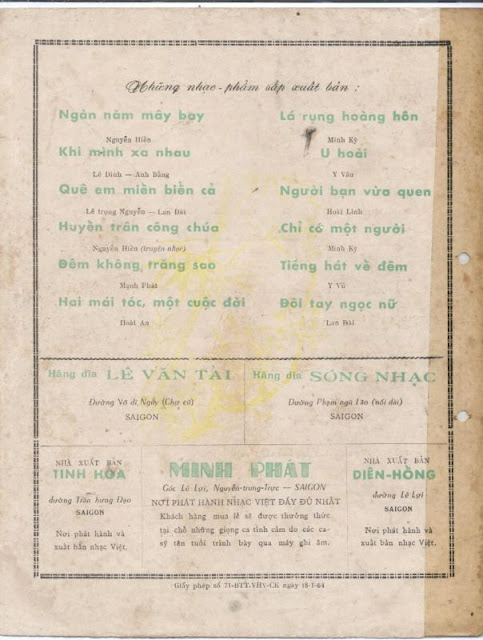 Những nhạc-phẩm sắp xuất bản :
Ngàn năm mây bay
Nguyễn Hiền
Khi mình xa nhau
Lê Dinh — Anh Bằng
Quê em miền biển cả
Lê trọng Nguyễn — Lan Đài
Huyền trân công chúa
Nguyễn Hiền (truyện nhạc)
Đêm không trăng sao
Mạnh Phát
Hai mái tóc, một cuộc đời
Hoài An
Lá rụng hoàng hôn
Minh Kỳ
U hoài
Y Vân
Người bạn vừa quen
Hoài Linh
Chỉ có một người
Minh Kỳ
Tiếng hát về đêm
Y Vũ
Đôi tay ngọc nữ
Lan Đài
Hãng dĩa LÊ VĂN TÀI
Đường Võ di Nguy (Chợ cũ)
SAIGON
Hãng dĩa SÓNG NHẠC
Đường Phạm ngũ Lão (nối dài)
SAIGON
NHÀ XUẤT BẢN
TINH HOA
đường Trần hưng Đạo
SAIGON
Nơi phát hành và
xuất bản nhạc Việt.
MINH PHÁT
Góc Lê Lợi, Nguyễn-trung-Trực — SAIGON
NƠI PHÁT HÀNH NHẠC VIỆT ĐẦY ĐỦ NHẤT
Khách hàng mua lẻ sẽ được thưởng thức
tại chỗ những giọng ca tình cảm do các ca-
sỹ tên tuổi trình bày qua máy ghi âm.
NHÀ XUẤT BẢN
DIÊN-HỒNG
đường Lê Lợi
SAIGON
Nơi phát hành và
xuất bản nhạc Việt.
Giấy phép số 71-BTT-VHV-CK ngày 18-1-64